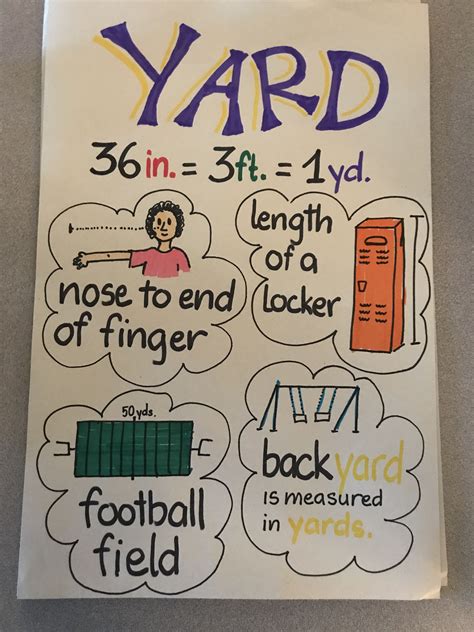 YARD
36in. = 3ft. = 1yd.
nose to end
of finger
length
of a
Locker
50 yds.
football
field
backyard
is measured
in yards.